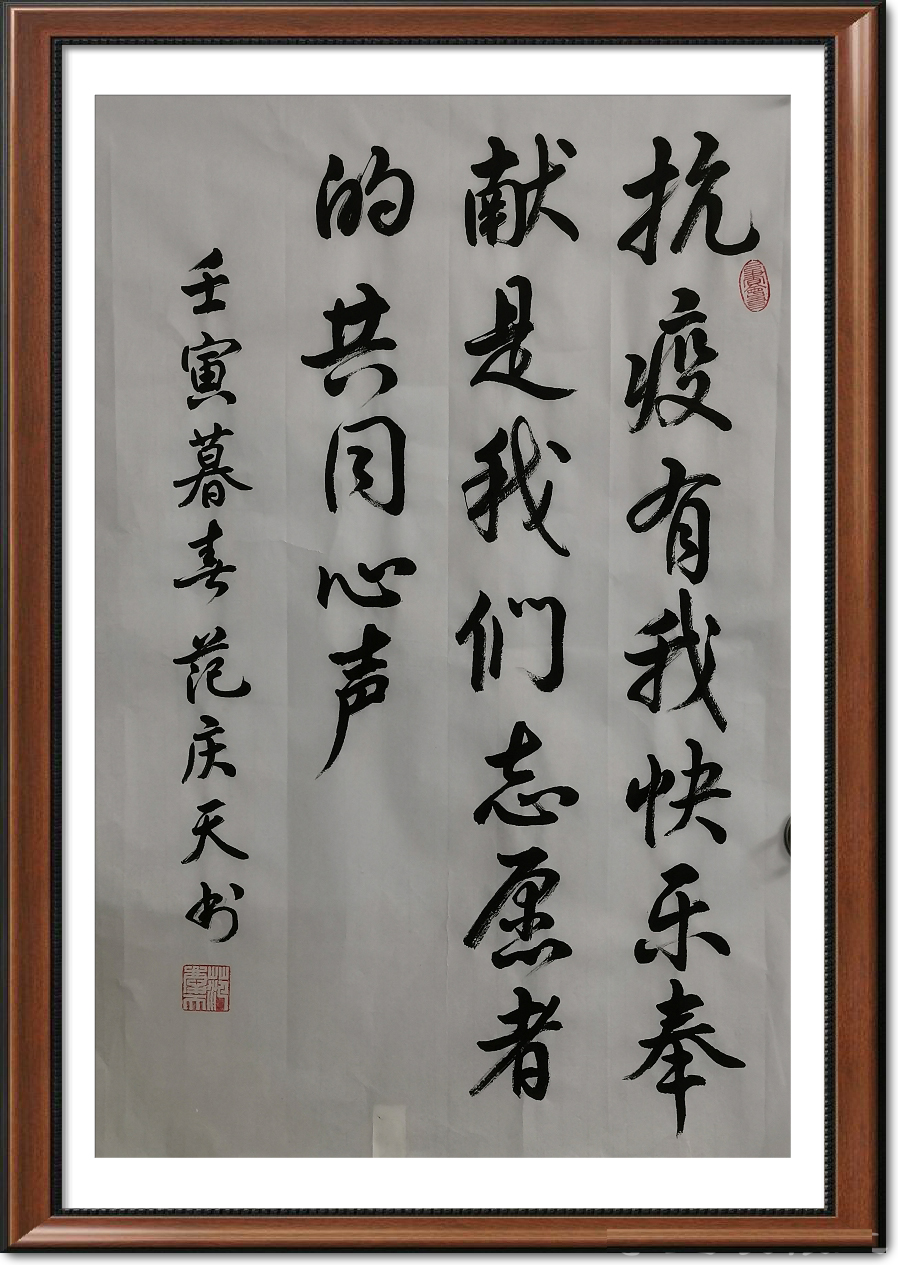 抗疫有我快乐奉
献是我们志愿者
的共同心声
壬寅暮春范庆天书